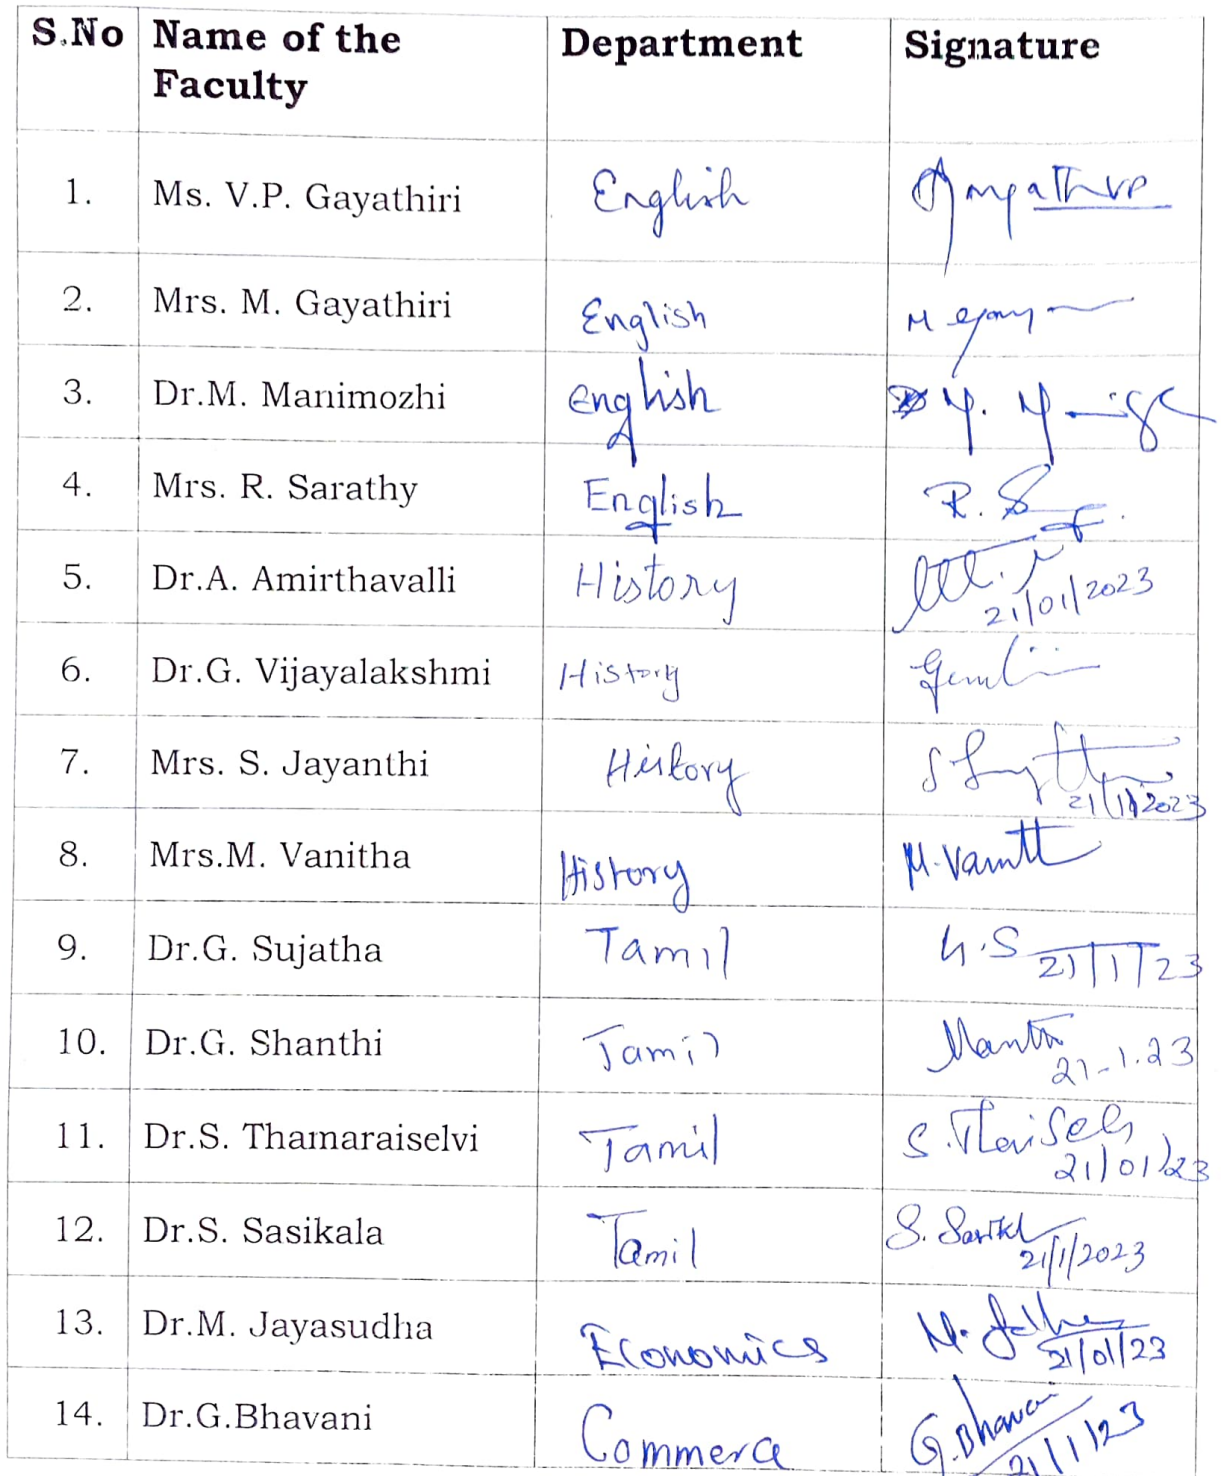 S.No Name of the Faculty Department Signature
1. Ms. V.P. Gayathiri English
2. Mrs. M. Gayathiri English
3. Dr.M. Manimozhi English
4. Mrs. R. Sarathy English R.
5. Dr.A. Amirthavalli History 21/01/2023
6. Dr.G. Vijayalakshmi History
7. Mrs. S. Jayanthi History 21/1/2023
8. Mrs.M. Vanitha History M.
9. Dr.G. Sujatha Tamil G.S 21/1/23
10. Dr.G. Shanthi Tamil 21-1.23
11. Dr.S. Thamaraiselvi Tamil S. 21/01/23
12. Dr.S. Sasikala Tamil S. 21/1/2023
13. Dr.M. Jayasudha Economics M. 21/01/23
14. Dr.G.Bhavani Commerce G.Bhavani 21/1/23